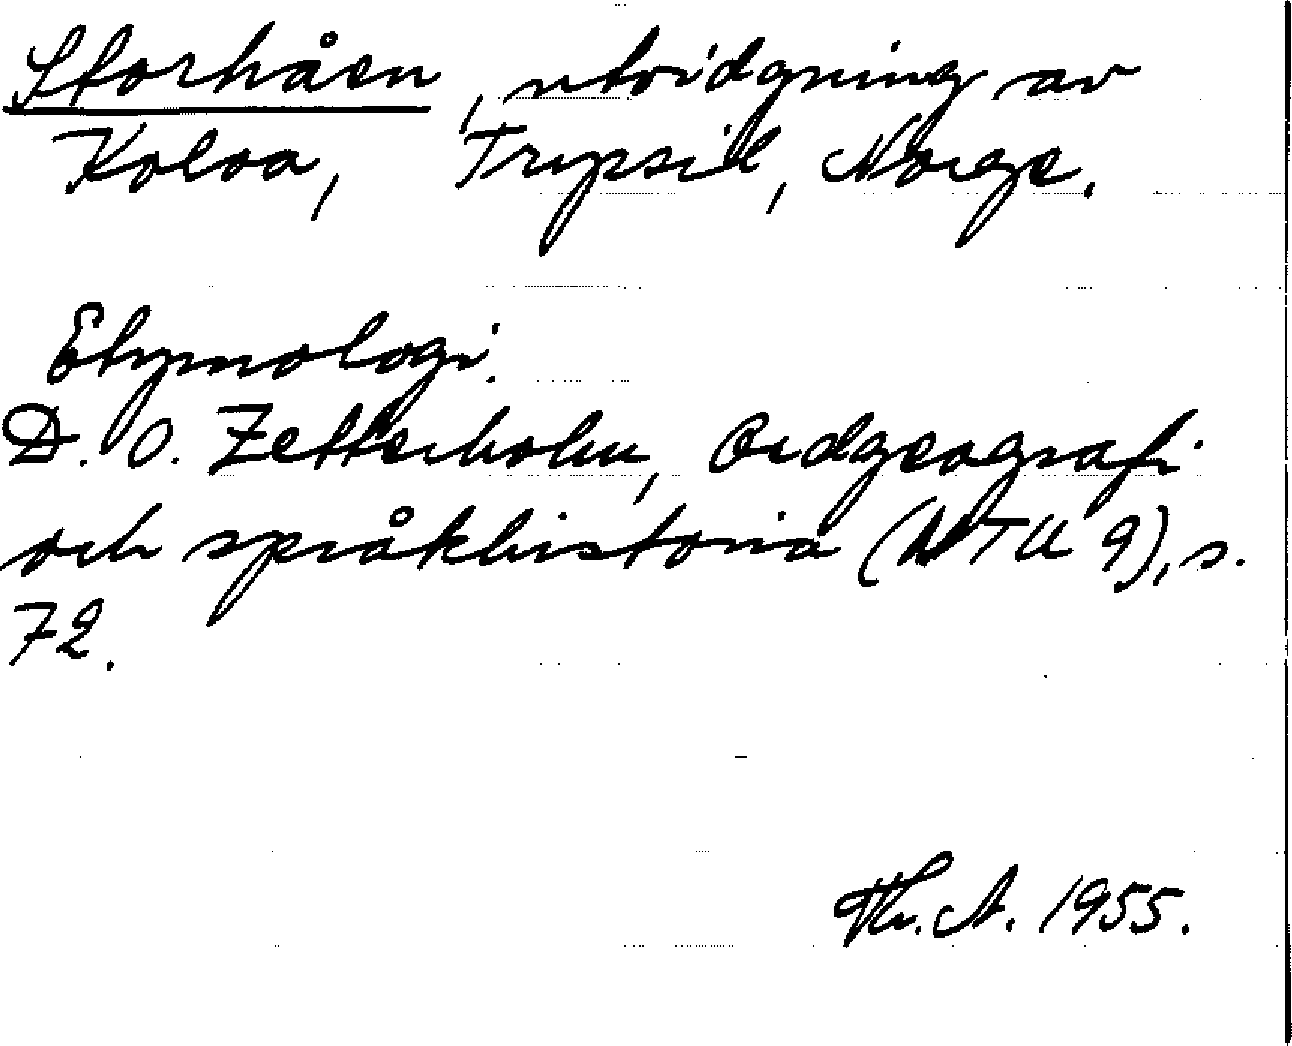 Storhåen, utvidgning av
Koloa, Trypsil, Norge.
Etymologi.
D. O. Zetterholm, Ordgeografi
och språkhistoria (NTU 9), s.
72.
Th. A. 1955.